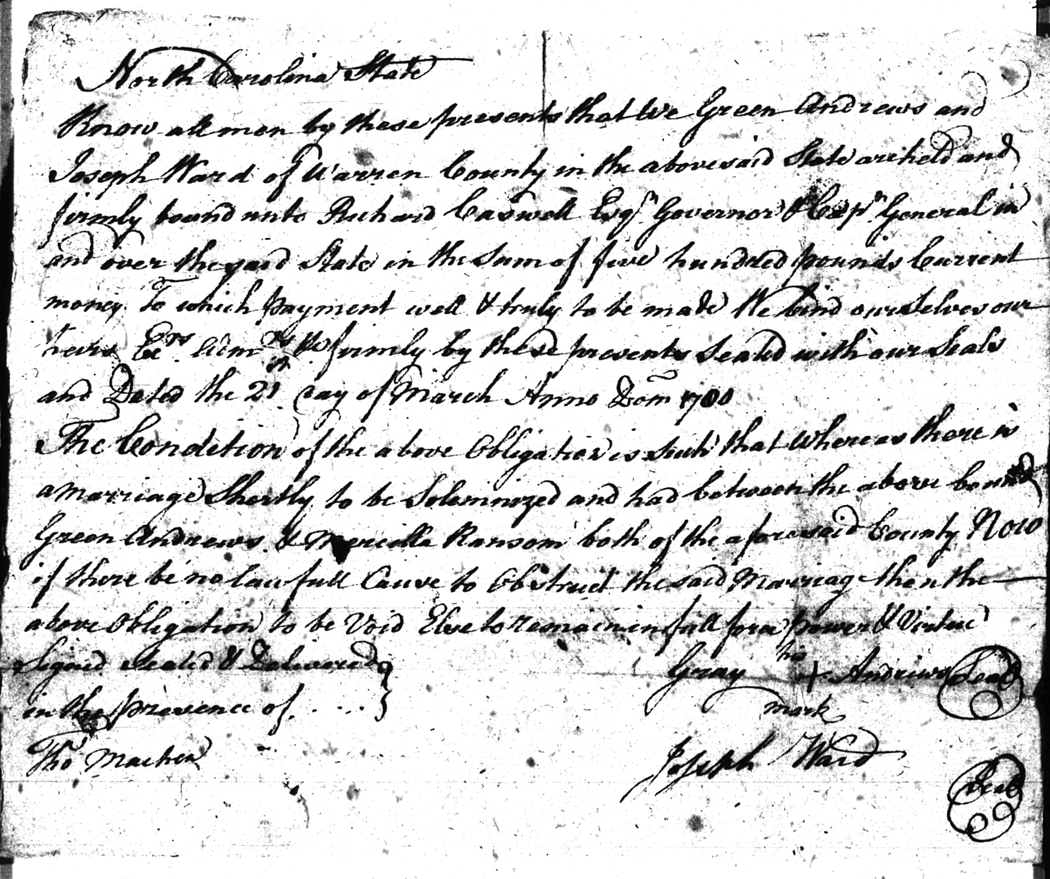 North Carolina State
Know all men by these presents that We Green Andrews and
Joseph Ward of Warren County in the abovesaid State are held and
firmly bound unto Richard Caswell Esqr. Governor & Capn. General in
and over the said State in the Sum of five hundred pounds Current
money To which payment well & truly to be made We bind ourselves our
heirs Exrs. Admrs. &c firmly by these presents Sealed with our Seals
and Dated the 21st day of March Anno Dom 1780
The Condition of the above Obligation is Such that Whereas there is
a Marriage Shortly to be Solemnized and had between the above bound
Green Andrews & Ransom both of the aforesaid County Now
if there be no lawfull Cause to Obstruct the said Marriage then the
above Obligation to be Void Else to remain in full force power & Virtue
Signed Sealed & Delivered
in the presence of . . . . .
Gray his + Andrews Seal
mark
Thos
Joseph Ward Seal